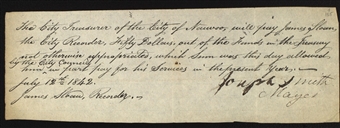 The City Treasurer of the City of Nauvoo, will pay James Sloan,
the City Recorder, Fifty Dollars, out of the Funds in the Treasury
not otherwise appropriated, which Sum was this day allowed
by the City Council
him in part pay for his Services in the present Year.
July 12th 1842.
Joseph Smith
James Sloan, Recorder.
Mayor